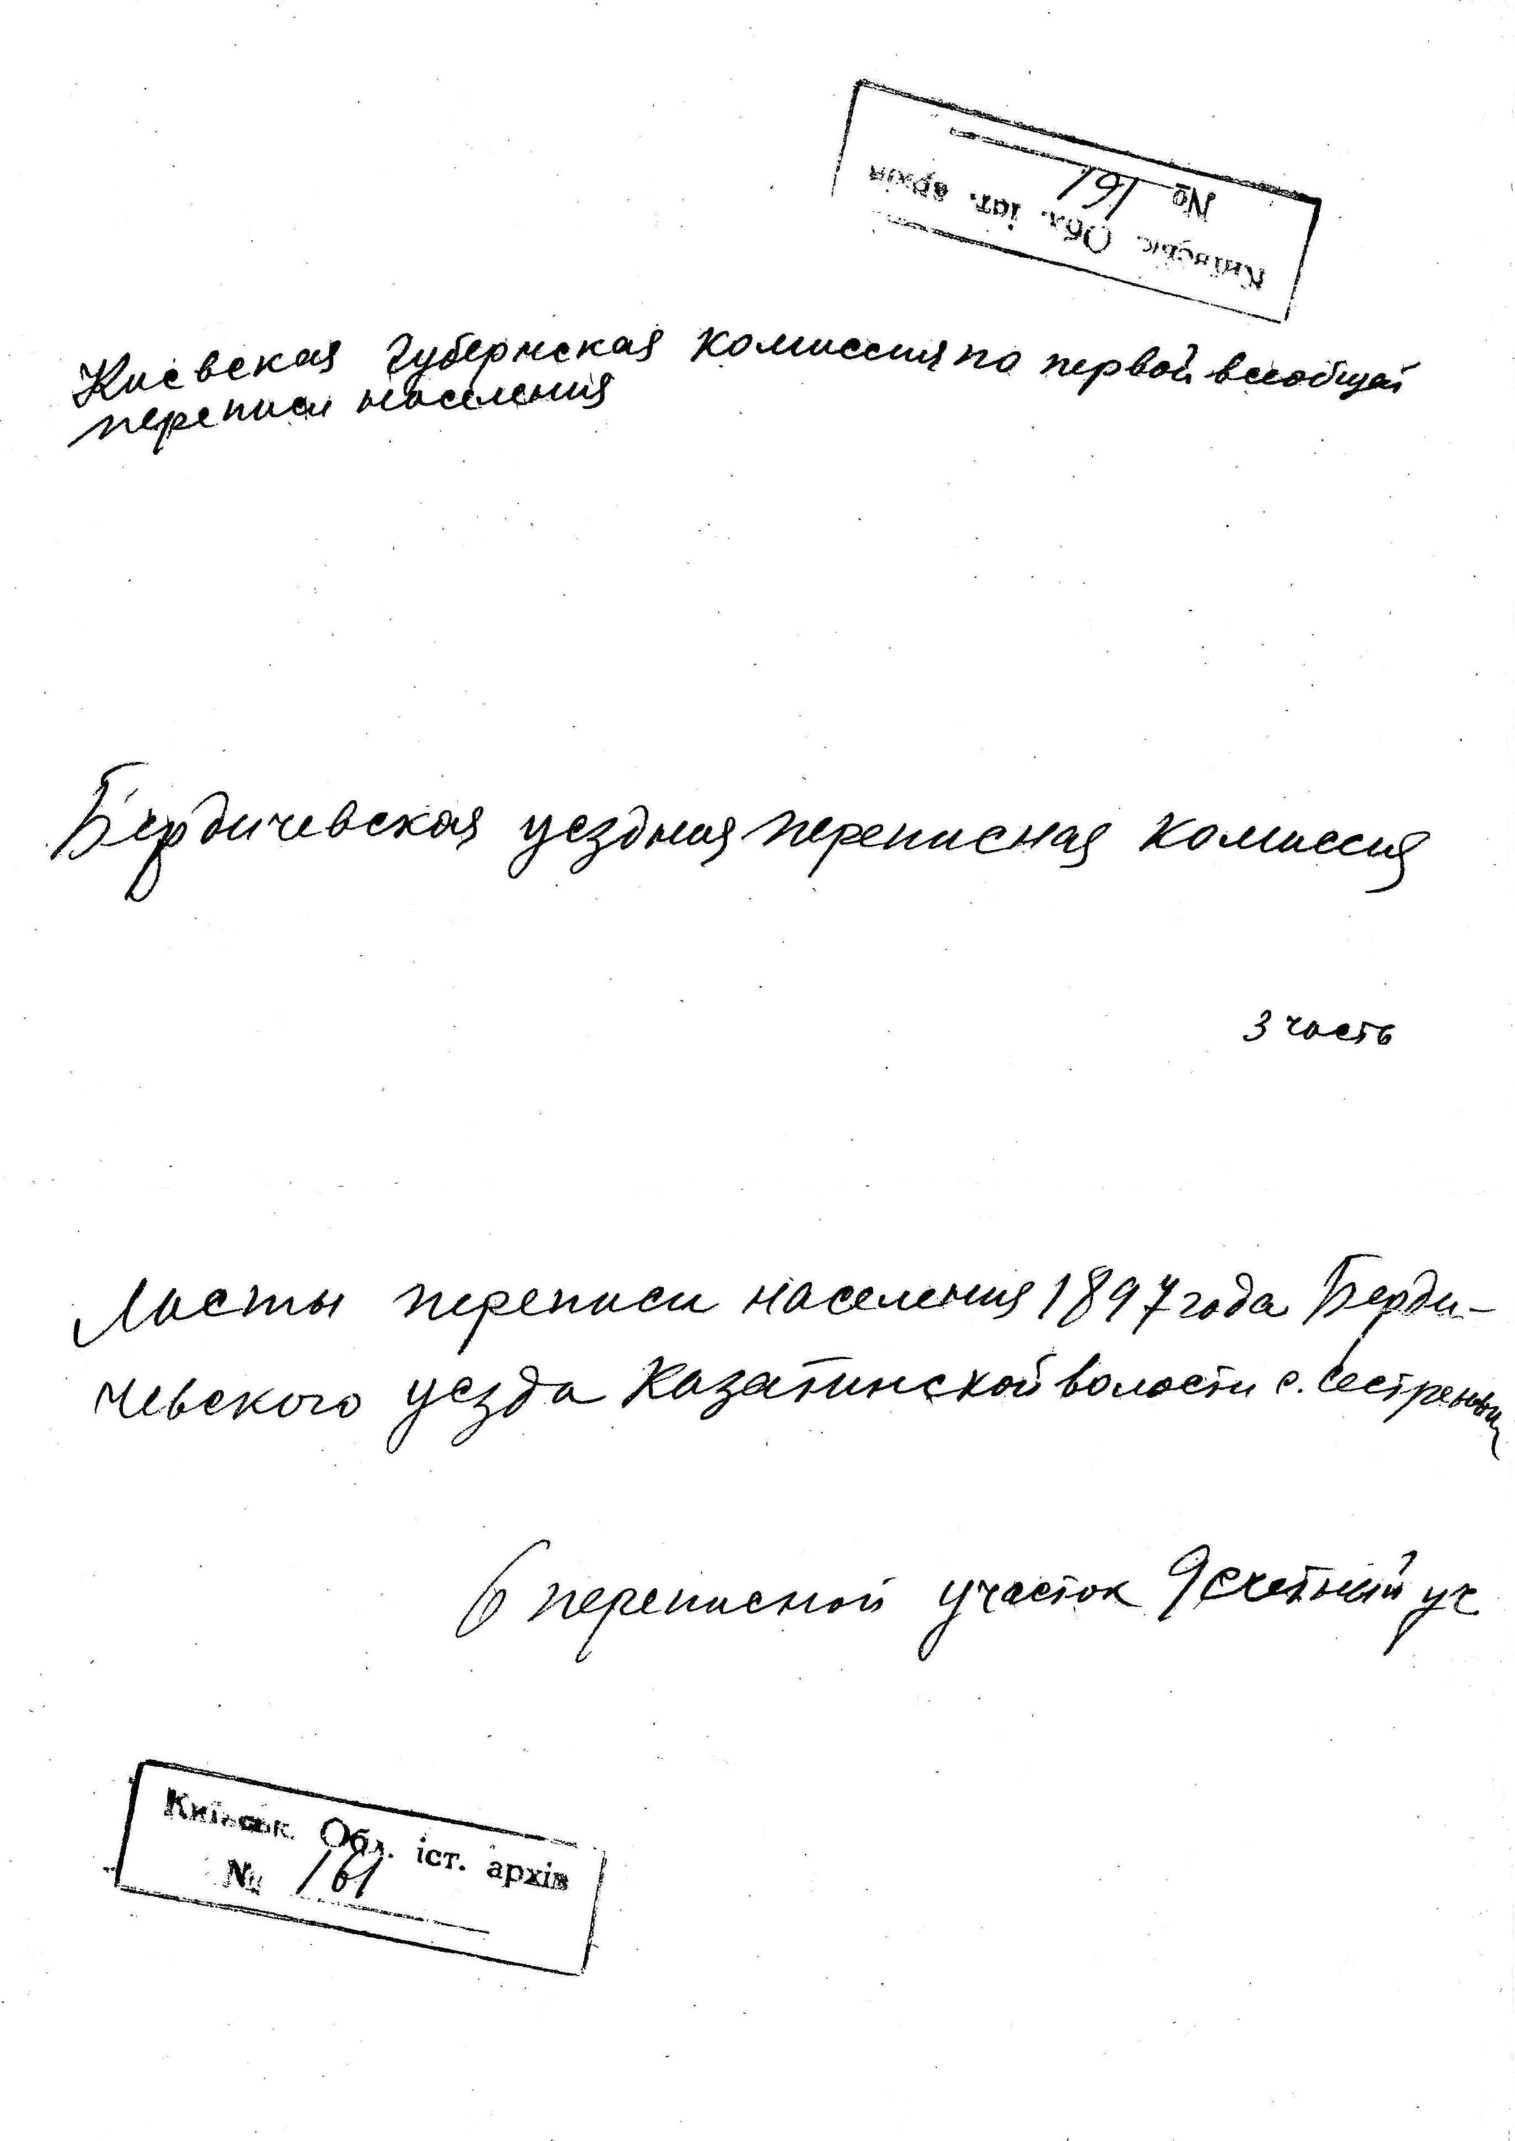 Київськ. Обл. іст. архів
№ 161
Киевская губернская комиссия по первой всеобщей
переписи населения
Бердичевская уездная переписная комиссия
3 часть
Листы переписи населения 1897 года Берди-
чевского уезда Казатинской волости с.
6 переписной участок 9 счетный уч
Київськ. Обл. іст. архів
№ 161